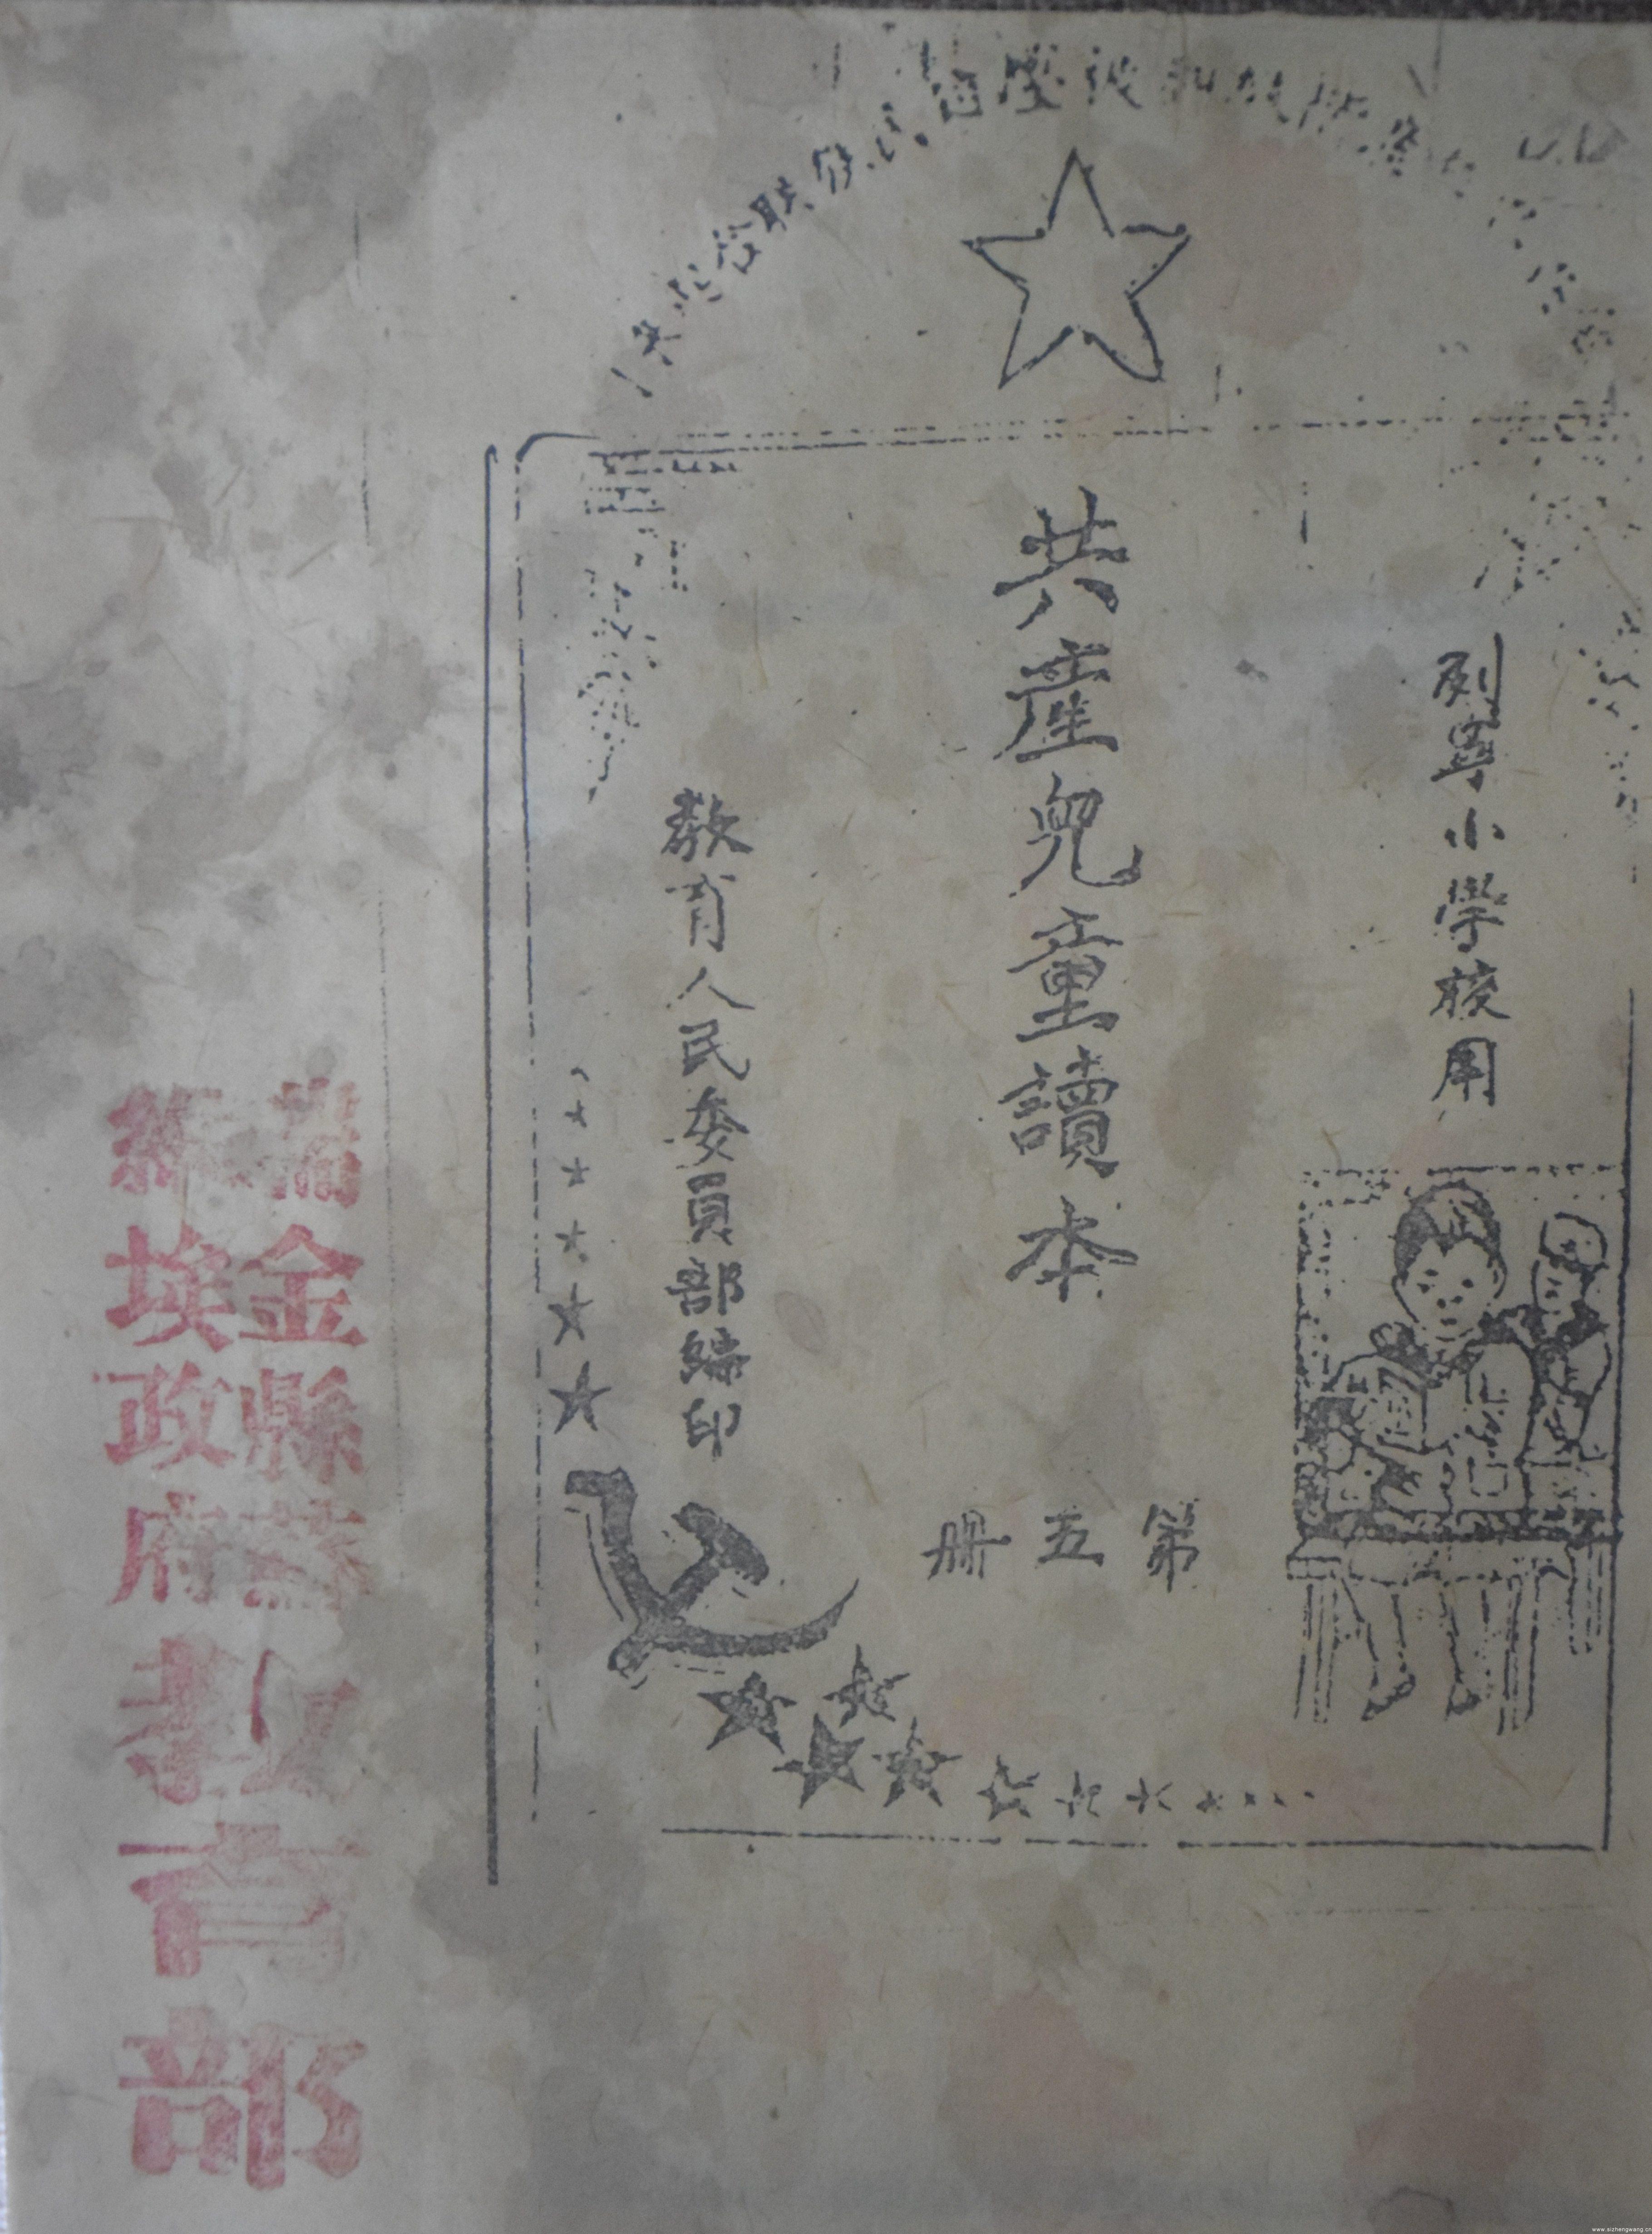 列寧小學校用
共產兒童讀本
第五冊
教育人民委員部編印
瑞金縣蘇
維埃政府
教育部
www.sizhengwang.cn